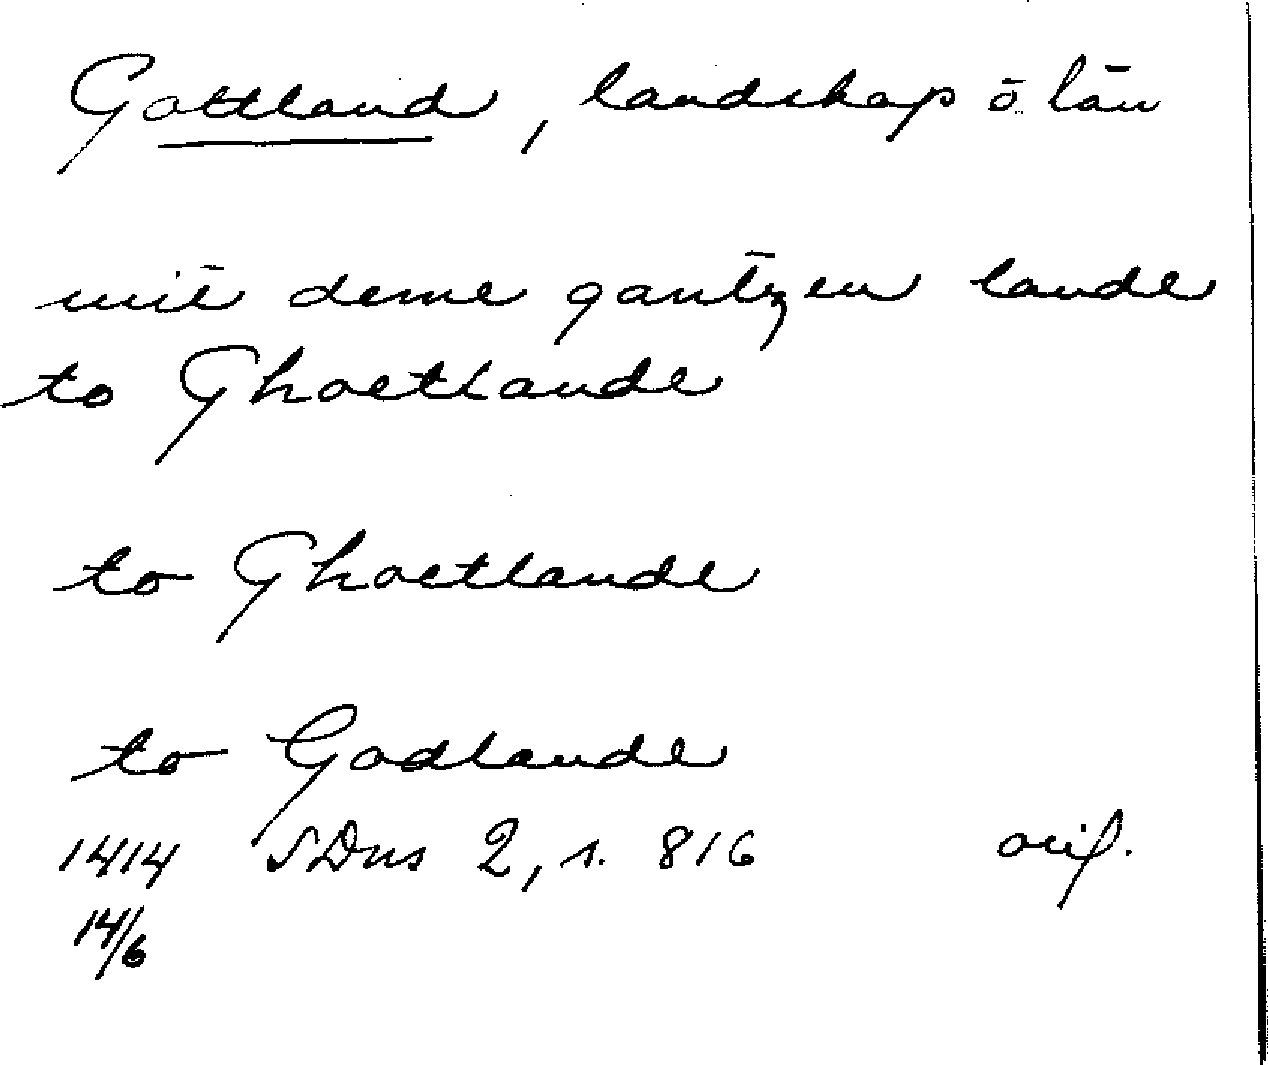 Gottland, landskap ō. län
mit deme gantzen lande
to Ghoetlande
to Ghoetlande
to Godlande
1414 SDns 2, s. 816 orig.
14/6